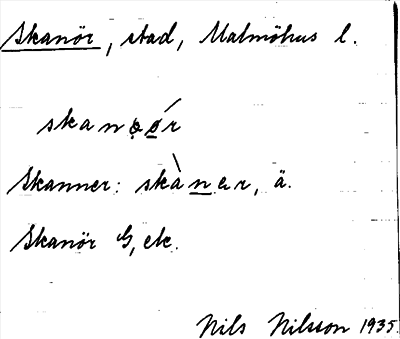 Skanör, stad, Malmöhus l.
skanǫǿr
Skanner: skàner, ä.
Skanör G, etc.
Nils Nilsson 1935.